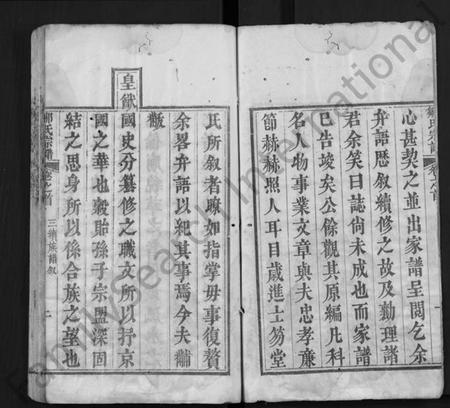 心甚契之並出家譜呈閱乞余
弁語歷敘續修之故及勷理諸
君余笑曰誌尚未成也而家譜
已告竣矣公餘觀其原編凡科
名人物事業文章與夫忠孝廉
節赫赫照人耳目歲進士笏堂
氏所敘者瞭如指掌毋事復贅
余畧弁語以紀其事焉今夫黼
黻
皇猷國史分纂修之職文所以抒京
國之華也穀貽孫子宗盟深固
結之思身所以係合族之望也
氏宗譜
卷之首
三續族譜叙
二
Family Search International